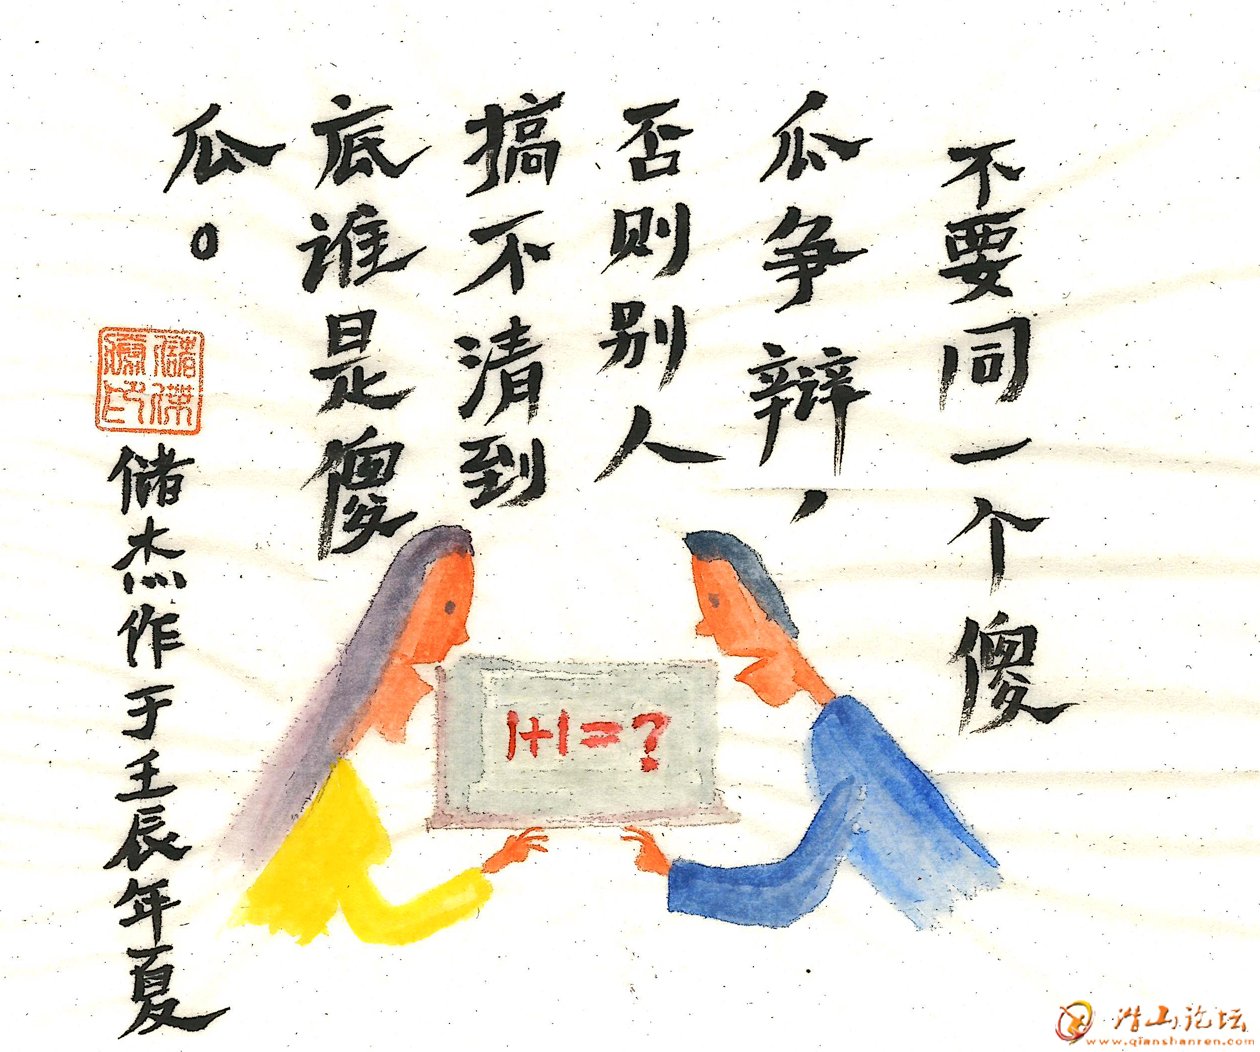 不要同一个傻
瓜争辩，
否则别人
搞不清到
底谁是傻
瓜。
储杰作于壬辰年夏
1+1=?
潜山论坛
www.qianshanren.com